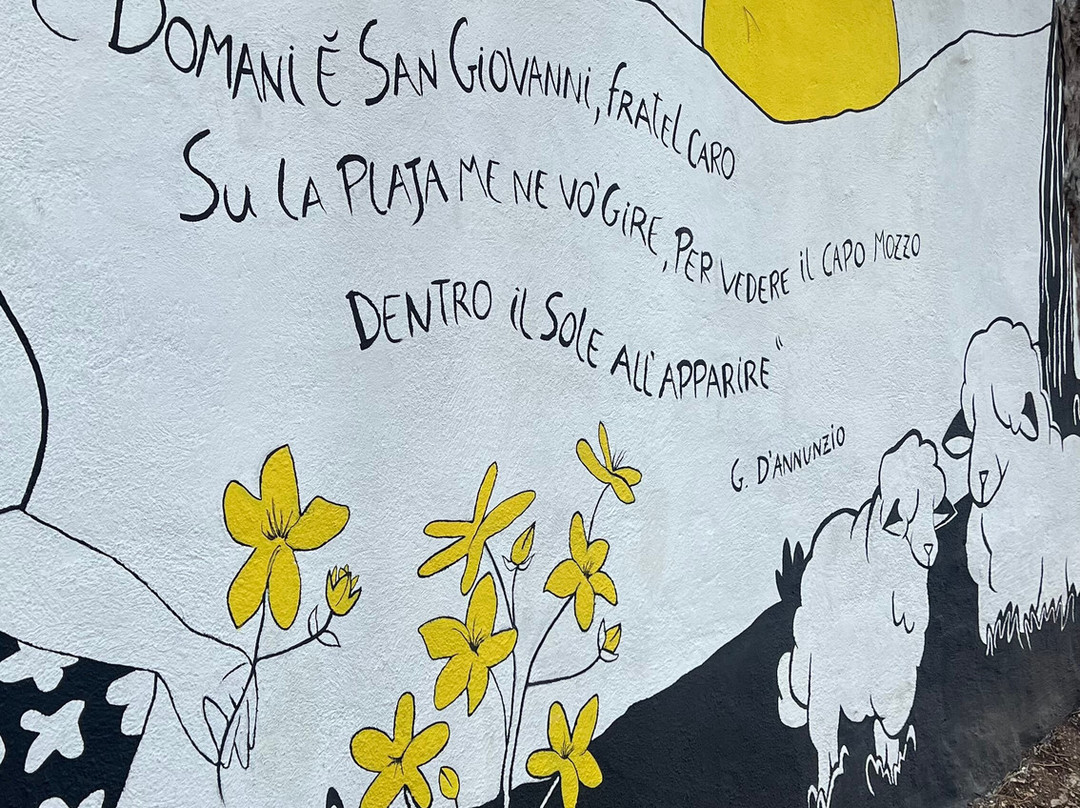 DOMANI Ĕ SAN GIOVANNI, FRATEL CARO
SU LA PLAJA ME NE VO' GIRE, PER VEDERE IL CAPO MOZZO
DENTRO IL SOLE ALL'APPARIRE"
G. D'ANNUNZIO